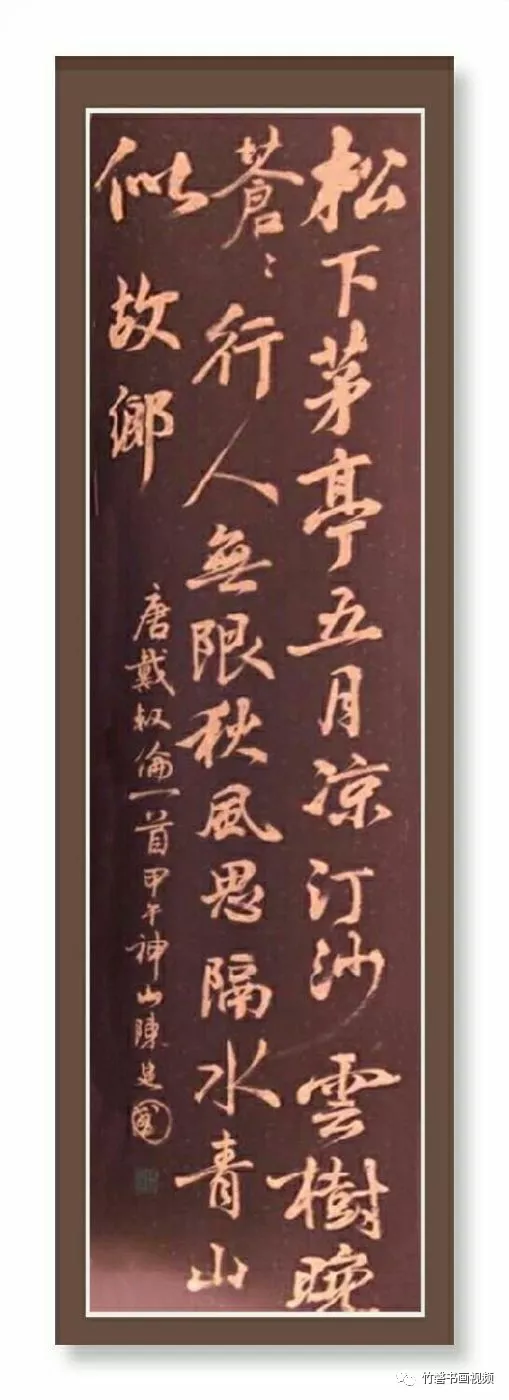 松下茅亭五月涼汀沙雲樹晚
蒼〻行人無限秋風思隔水青山
似故鄉
唐戴叔倫一首甲午神山陳建國
竹磬书画视频